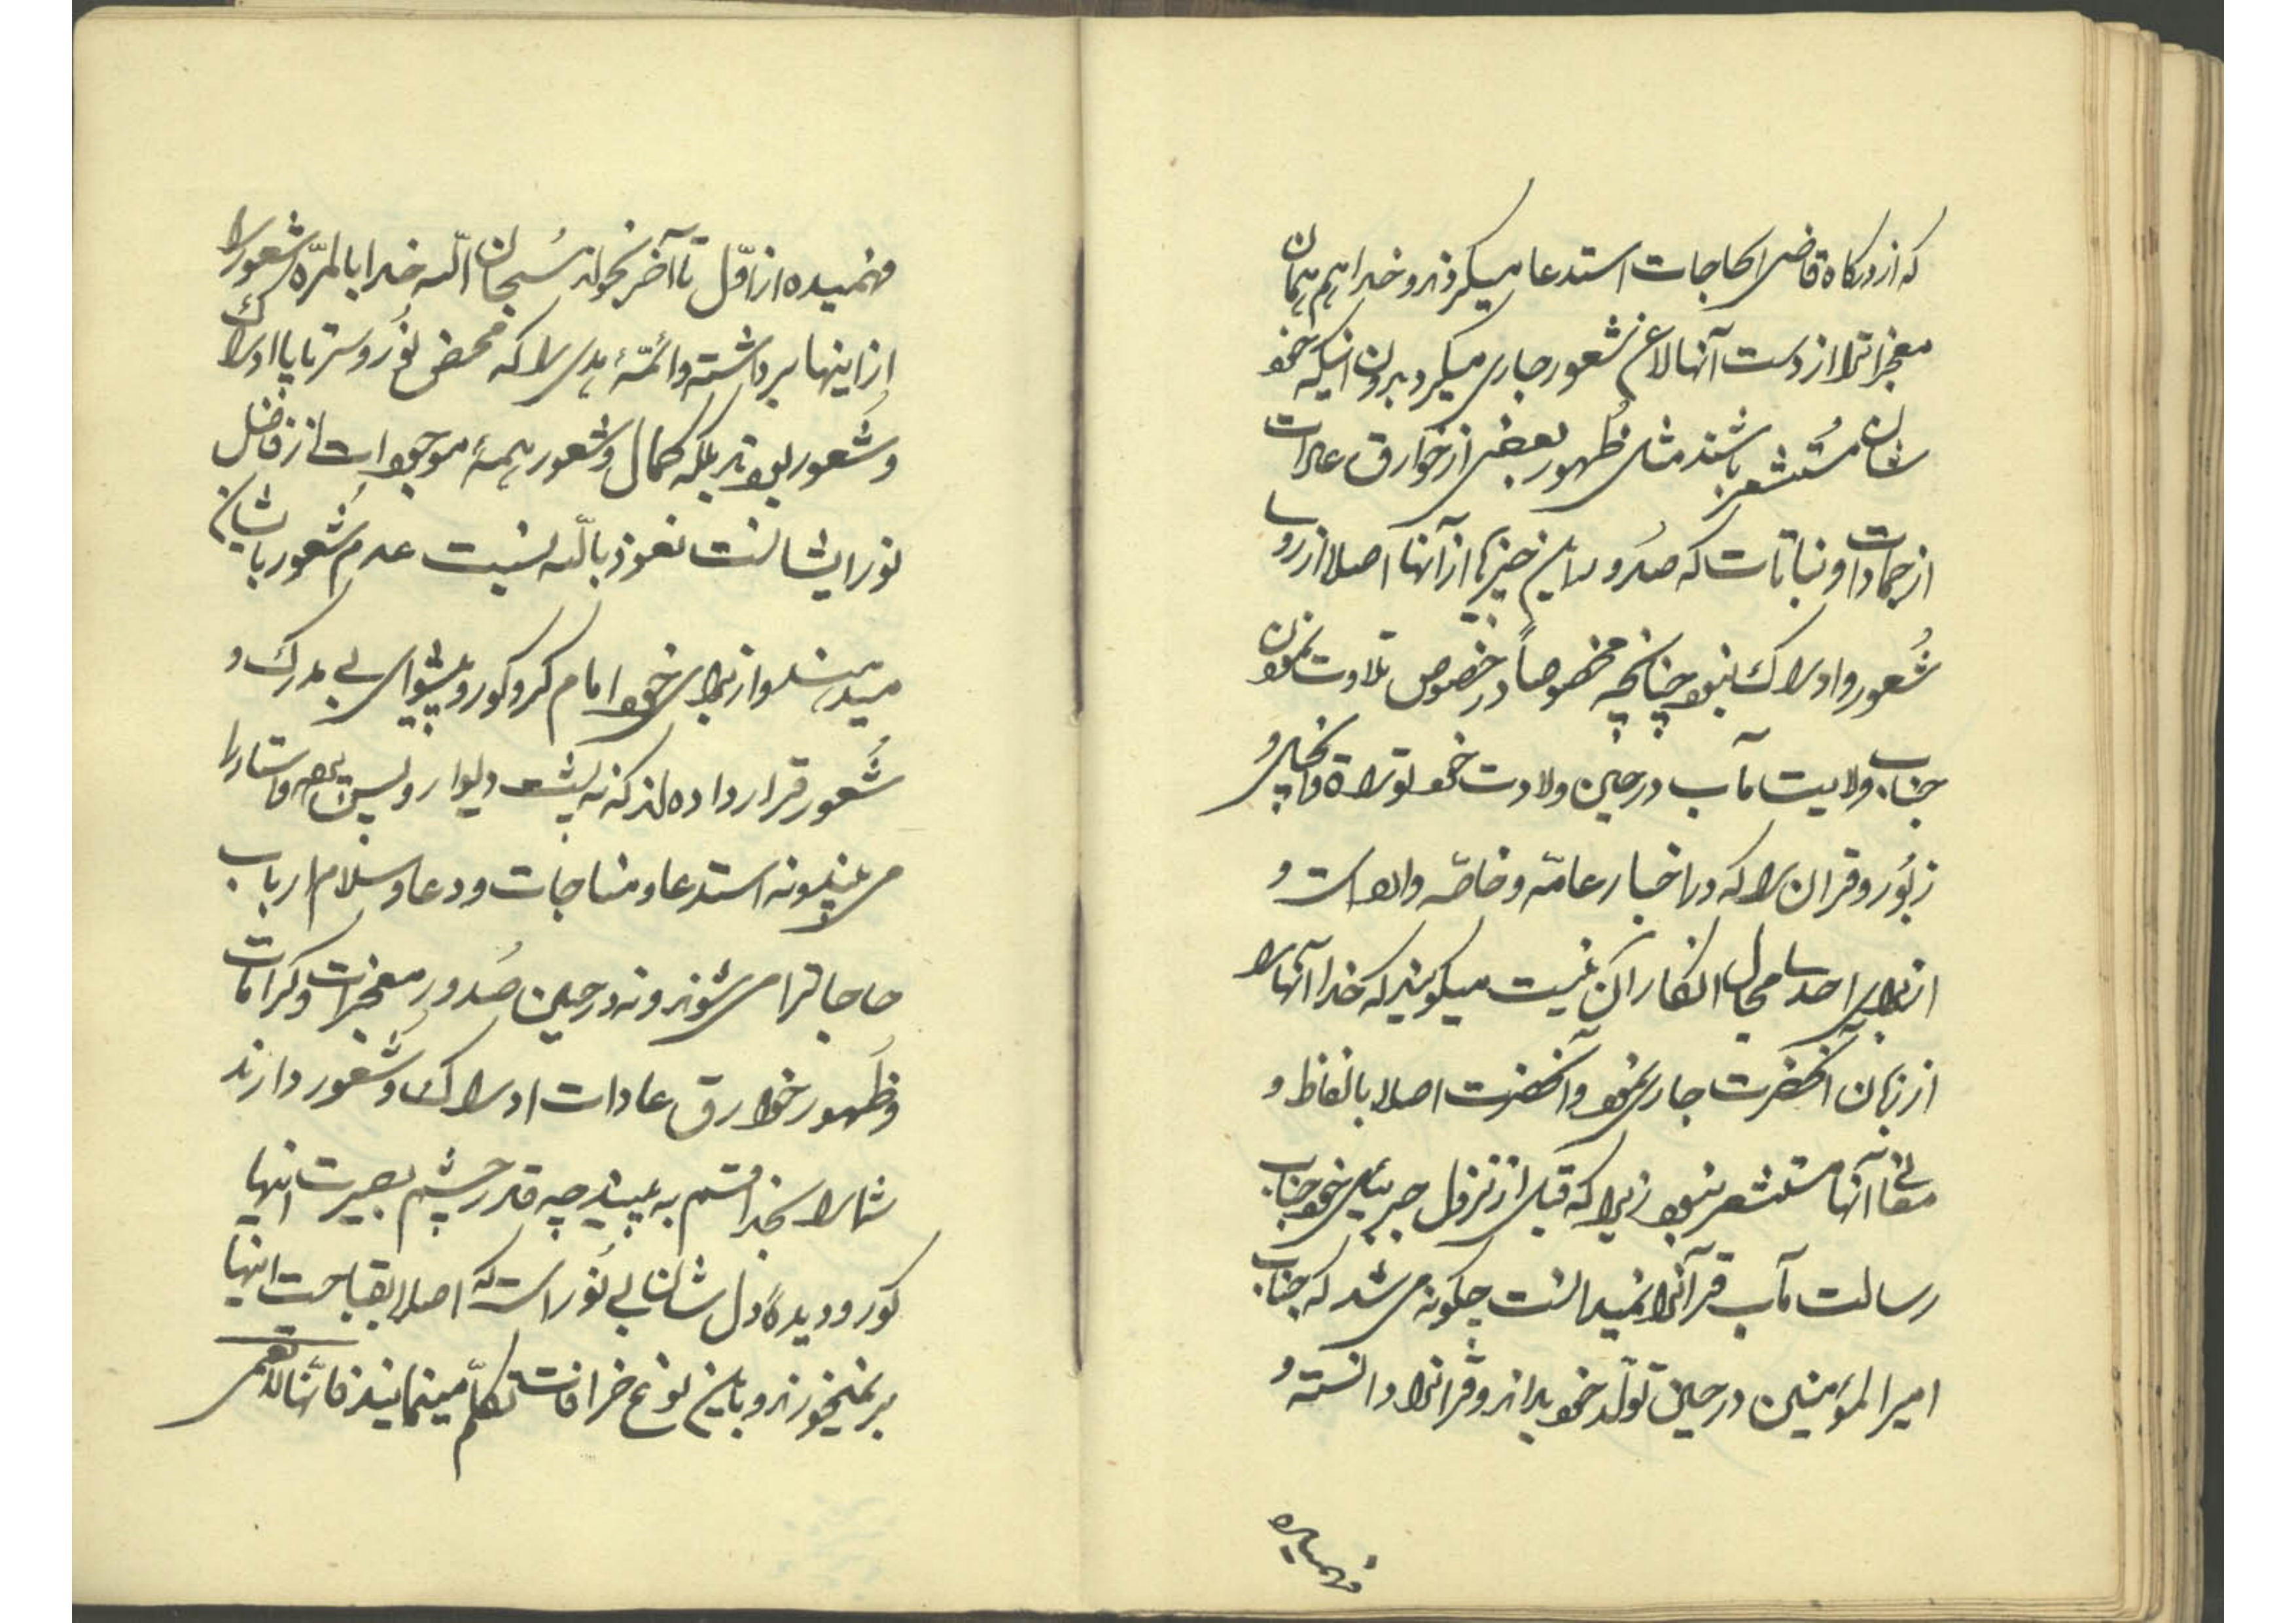 که از درگاه قاضی الحاجات استدعا میکردند و خدا هم همان
معجزاترا از دست آنها لاعن شعور جاری میکرد بدون اینکه خود
شان مستشعر باشند مثل ظهور بعضی از خوارق عادات
از جمادات و نباتات که صدور این چیزها از آنها اصلا از روی
شعور و ادراک نبود چنانچه مخصوصاً در خصوص تلاوت نمودن
جناب ولایت مآب در حین ولادت خود توراة و انجیل و
زبور و قران را که در اخبار عامّه و خاصّه وارد است و
از برای احدی مجال انکار آن نیست میکویند که خدا آنها را
از زبان آنحضرت جاری نمود و آنحضرت اصلا بالفاظ و
معانی آنها مستشعر نبود زیرا که قبل از نزول جبرئیل خود جناب
رسالت مآب قرآنرا نمیدانست چکونه می شد که جناب
امیر المؤمنین در حین تولّد خود بداند و قرآنرا دانسته و
فهمیده
فهمیده از اوّل تا آخر بخواند سُبحان اللّه خدا بالمرّه شعور را
از اینها برداشته و ائمّهٔ هدی را که محض نُور و سرتا پا ادراک
و شُعور بودند بلکه کمال و شعور همهٔ موجودات از فاضل
نور ایشانست نعوذ باللّه نسبت عدم شُعور بایشان
میدهند و از برای خود امام کر و کور و پیشوای بی مدرک و
شُعور قرار داده اند که نه پشت دیوار و پس
می بینند و نه استدعا و مناجات و دعا و سلام ارباب
حاجاترا می شنوند و نه در حین صُدور معجزات و کرامات
و ظُهور خوارق عادات ادراک و شُعور دارند
شما را بخدا قسم به بینید چه قدر چشم بصیرت اینها
کور و دیدهٔ دل شان بی نُور است که اصلا بقباحت اینها
بر نمیخورند و باین نوع خرافات تکلّم مینمایند فانّها لا تعمی